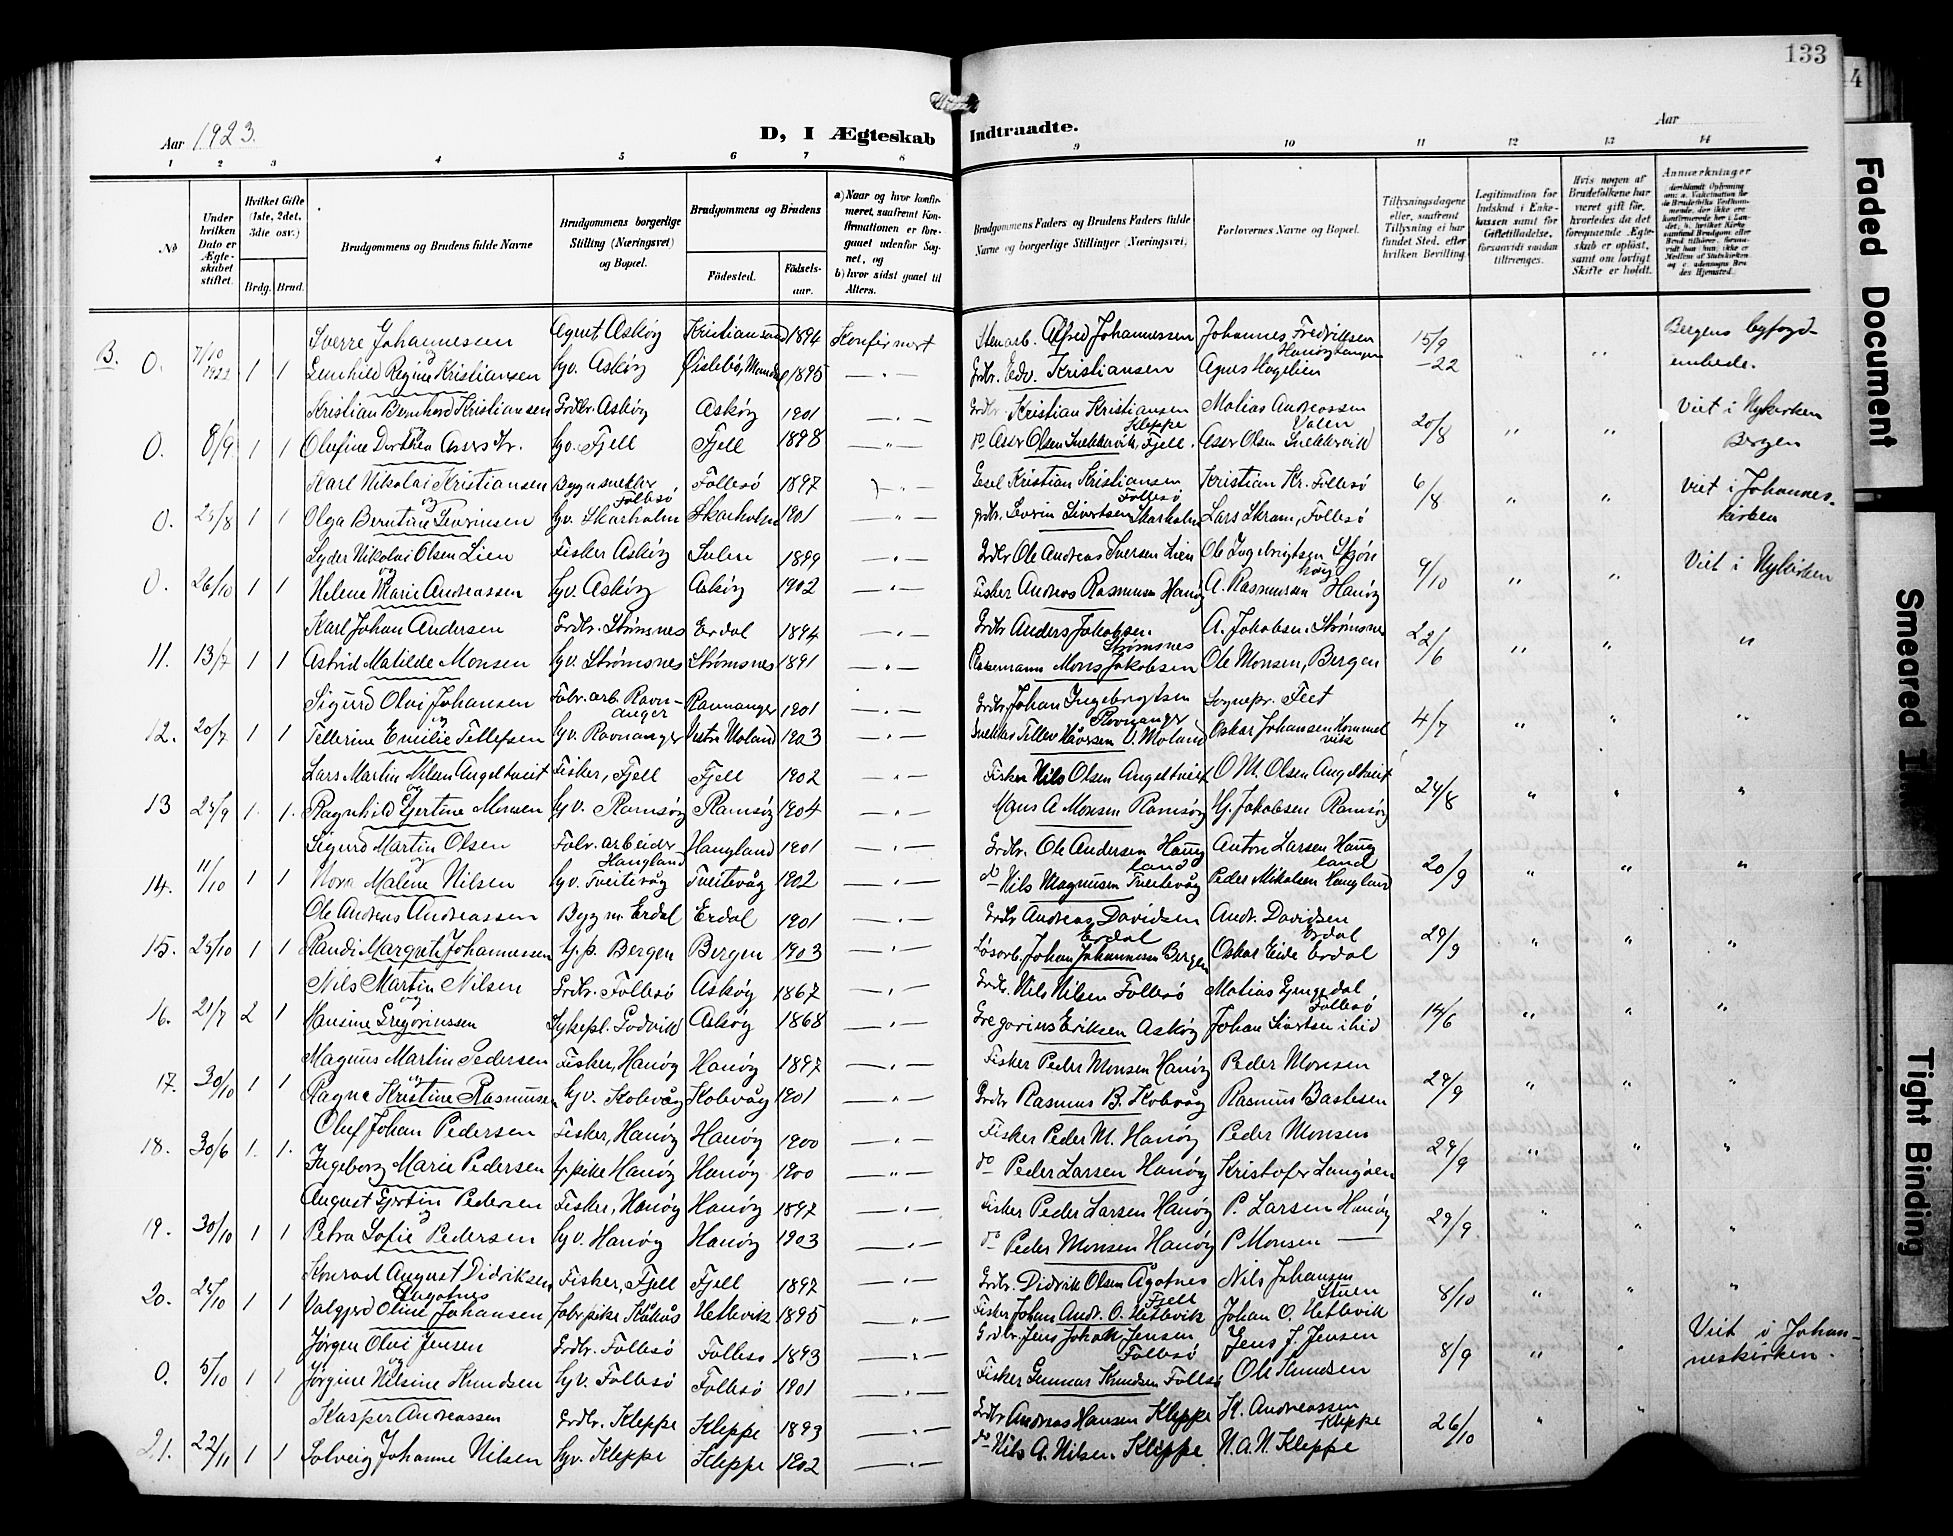 133
4
Aar 1923.
D, I Ægteskab
Indtraadte.
Aar
1 2 3 4 5 6 7 8 9 10 11 12 13 14
No
Under hvilken Dato er Ægteskabet stiftet.
Hvilket Gifte (1ste, 2det, 3die osv.)
Brdg. Brud.
Brudgommens og Brudens fulde Navne
Brudgommens borgerlige Stilling (Næringsvei) og Bopæl.
Brudgommens og Brudens
Fødested. Fødselsaar.
a) Naar og hvor konfirmeret, saafremt Konfirmationen er foregaaet udenfor Sognet, og
b) hvor sidst gaaet til Alters.
Brudgommens Faders og Brudens Faders fulde Navne og borgerlige Stillinger (Næringsvei)
Forlovernes Navne og Bopæl.
Tillysningsdagene eller, saafremt Tillysning ei har fundet Sted, efter hvilken Bevilling.
Legitimation for Indskud i Enkekassen samt for Giftetilladelse, forsaavidt saadan tiltrænges.
Hvis nogen af Brudefolkene har været gift før, hvorledes da det foregaaende Ægteskab er opløst, samt om lovligt Skifte er holdt.
Anmærkninger
B. Sverre Johannesen Agent Askøy Kristiansand 1894 Konfirmert Stenarb. Alfred Johannessen Johannes Fredriksen 15/9 Bergens byfogd-
0. 7/10 1922 1 1 Regine Kristiansen Hv. Askøy Øislebø, Mandal 1895 Grdbr. Edv. Kristiansen Agnes Hagelien -22 embede.
Kristian Bernhard Kristiansen Grdbr. Askøy Askøy 1901 Grdbr. Kristian Kristiansen Kleppe Matias Andreassen Valen 20/8 Viet i Nykirken
0. 8/9 1 1 Olufine Dorthea Asersdtr. Hv. Fjell Fjell 1898 do Aser Olsen Snekkevik, Fjell. Aser Olsen Snekkevik Bergen
Karl Nikolai Kristiansen Bygnsnekker Follesø Follesø 1897 Kristian Kristiansen Follesø Kristian Kr. Follesø 6/8 Viet i Johannes-
0. 25/8 1 1 Olga Berntine Severinsen Hv. Skarholm Skarholm 1901 Grdbr. Severin Sivertsen Skarholm Lars Skram, Follesø kirken
Lyder Nikolai Olsen Lien Fisker Askøy Sulen 1899 Grdbr Ole Andreas Iversen Lien Ole Ingebrigtsen 9/10 Viet i Nykirken
0. 26/10 1 1 Helene Marie Andreassen Hv. Askøy Askøy 1902 Fisker Andreas Rasmussen Hanøy A. Rasmussen Hanøy
Karl Johan Andersen Grdbr. Strømsnes Erdal 1894 Grdbr Anders Jakobsen. Strømsnes A. Jakobsen. Strømsnes 22/6
11. 13/7 1 1 Astrid Matilde Monsen Hv. Strømsnes Strømsnes 1891 Mons Jakobsen Ole Monsen, Bergen
Sigurd Olvi Johansen Fabr. arb. Ravnanger Ravnanger 1901 Grdbr. Johan Ingebrigtsen Ravnanger Sognepr. Feet 4/7
12. 20/7 1 1 Tellerine Emilie Tellefsen Hv. Ravnanger Vestre Moland 1903 Snekker Tellev Haaversen V. Moland Oskar Johansen Hommelvik
Lars Martin Nilsen Angeltveit Fisker, Fjell Fjell 1902 Fisker Nils Olsen Angeltveit O. M. Olsen Angeltveit 24/8
13 23/9 1. 1. Ragnhild Gjertine Monsen Hv. Ramsøy Ramsøy 1904 Hans A Monsen Ramsøy Hj. Jakobsen Ramsøy
Sigurd Martin Olsen Fabr. arbeider Haugland Haugland 1901 Grdbr. Ole Andersen Haugland Anton Larsen Haugland 20/9
14. 11/10 1 1 Nora Malene Nilsen Hv. Tveitevåg Tveitevåg 1902 do Nils Magnusen Tveitevåg Peder Mikalsen Haugland
Ole Andreas Andreassen Bygn. Erdal Erdal 1901 Grdbr Andreas Davidsen Erdal Andr. Davidsen Erdal 29/9
15. 25/10 1 1 Randi Margrete Johannessen Hp. Bergen Bergen 1903 Løsarb. Johan Johannessen Bergen Oskar Eide Erdal
Nils Martin Nilsen Grdbr. Follesø Askøy 1867 Grdbr. Nils Nilsen Follesø Matias Gjengedal Follesø 14/6
16. 21/7 2 1 Hansine Gregoriussen Sykepl. Askøy 1868 Gregorius Eriksen Askøy Johan Sivertsen ibid
Magnus Martin Pedersen Fisker, Hanøy Hanøy 1897 Fisker Peder Monsen Hanøy Peder Monsen 29/9
17. 30/10 1 1 Ragna Kristine Rasmussen Hv. Kolvåg Kolvåg 1901 Grdbr Rasmus B. Kolvåg Rasmus Bastesen
Oluf Johan Pedersen Fisker, Hanøy Hanøy 1900 Fisker Peder M. Hanøy Peder Monsen 29/9
18. 30/6 1. 1. Ingeborg Marie Pedersen Hpike Hanøy Hanøy 1900 do Peder Larsen Hanøy Kristofer Langøen
August Gjertin Pedersen Fisker, Hanøy Hanøy 1897 Fisker Peder Larsen Hanøy P. Larsen Hanøy 29/9
19. 30/10 1 1 Petra Sofie Pedersen Hv. Hanøy Hanøy 1903 do Peder Monsen Hanøy P Monsen
Konrad August Didriksen Ågotnes Fisker, Fjell Fjell 1897 Grdbr. Didrik Olsen Ågotnes Fjell Nils Johansen Stuen 8/10
20. 25/10 1 1 Valgjerd Oline Johansen Fabrpike Hetlevik 1895 Fisker Johan Andr. O. Hetlevik Johan O. Hetlevik
Jørgen Olvi Jensen Grdbr. Follesø Follesø 1893 Grdbr. Jens Johan Jensen Follesø Jens J. Jensen 8/9 Viet i Johan-
0. 5/10 1 1 Jørgine Nilsine Knudsen Hv. Follesø Follesø 1901 Fisker Gunnar Knudsen Follesø Ole Knudsen neskirken.
Kasper Andreassen Grdbr. Kleppe Kleppe 1893 Grdbr Andreas Hansen Kleppe K. Andreassen Kleppe 26/10
21. 22/11 1 1 Solveig Johanne Nilsen Hv. Kleppe Kleppe 1902 do Nils A. Nilsen. Kleppe N. A. N. Kleppe
Faded Document
Smeared
Tight Binding